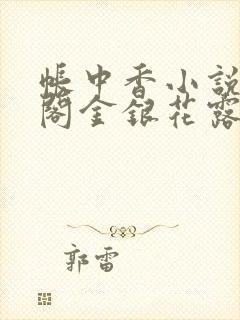 帳中香小說
閣金銀花露
郭雷